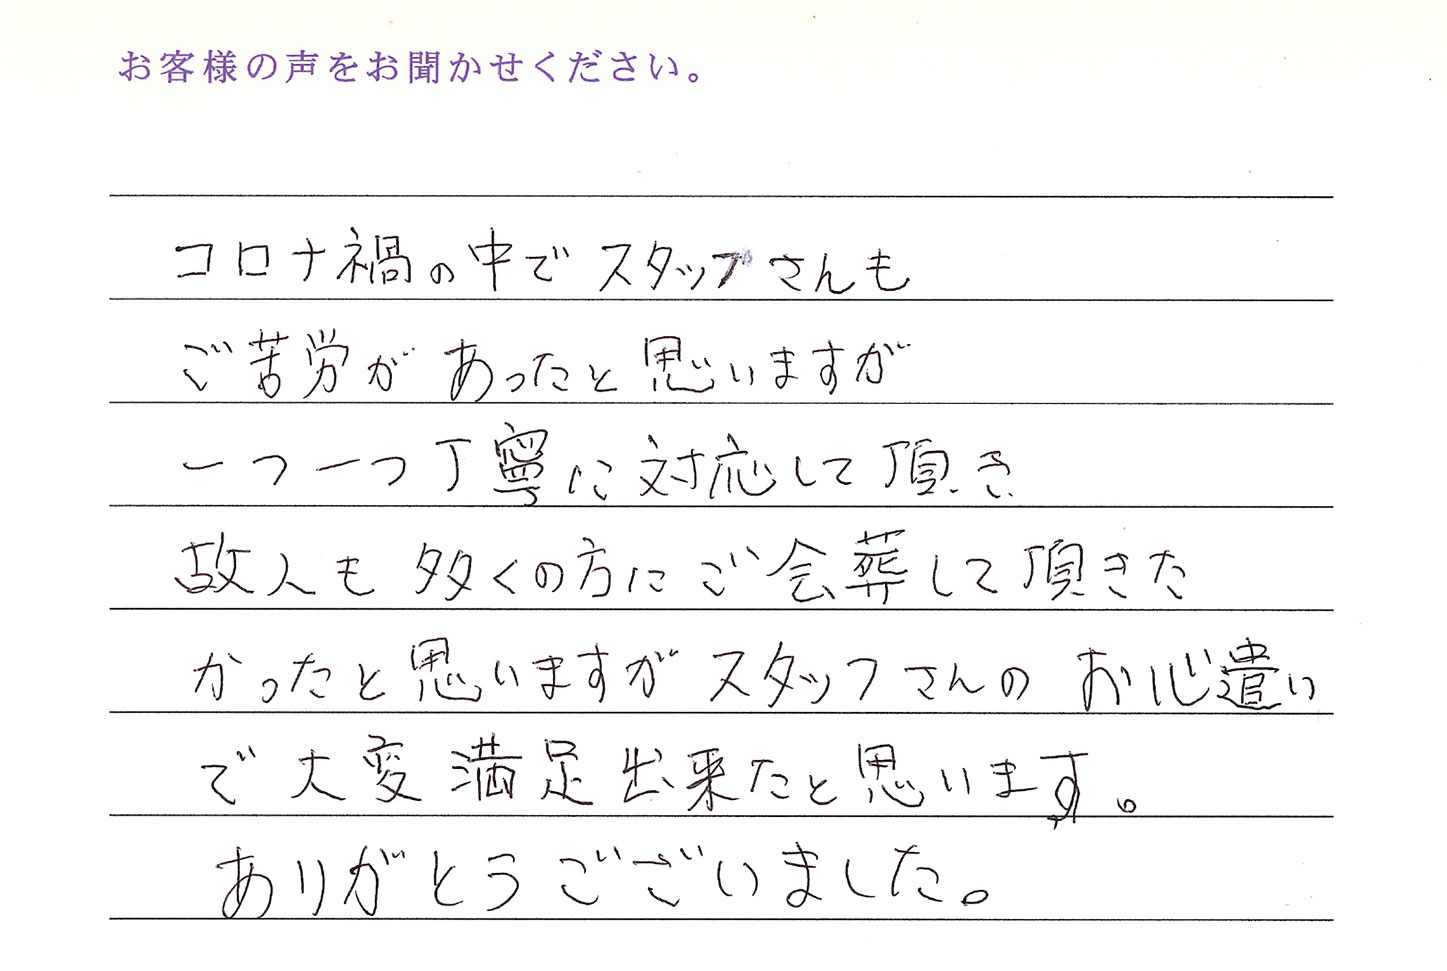 お客様の声をお聞かせください。
コロナ禍の中でスタッフさんも
ご苦労があったと思いますが
一つ一つ丁寧に対応して頂き
故人も多くの方にご会葬して頂きた
かったと思いますがスタッフさんのお心遣い
で大変満足出来たと思います。
ありがとうございました。